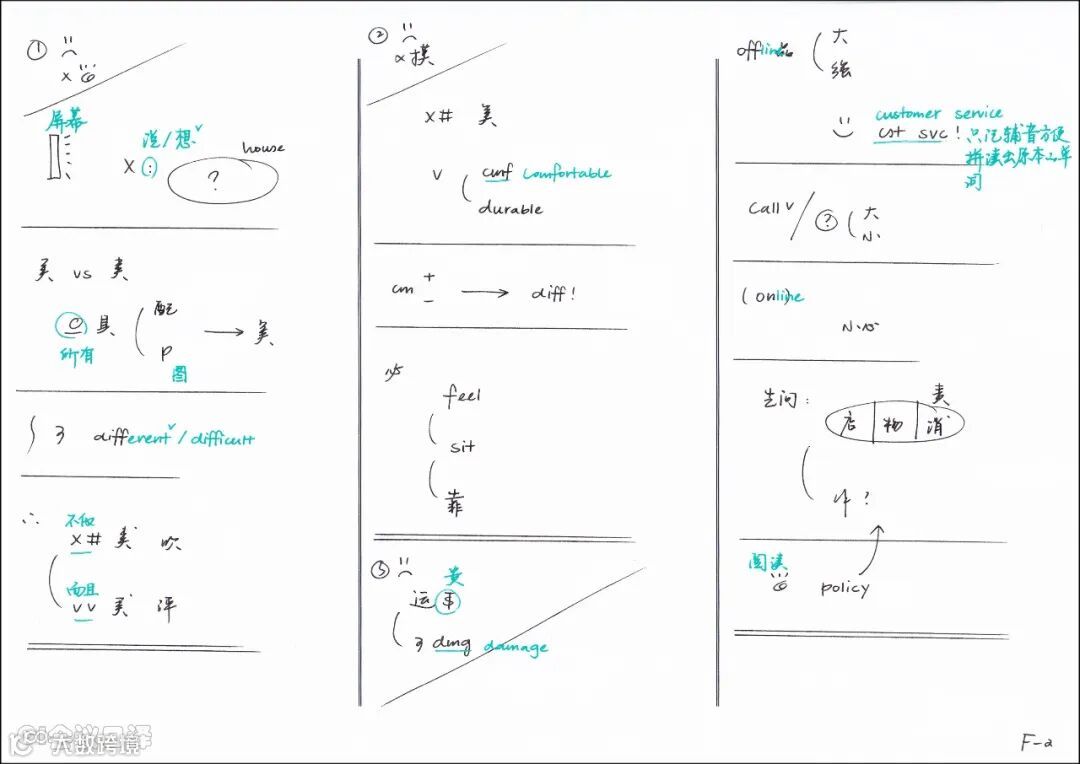 ①
x
屏幕
说/想
x : house
?
买 vs 卖
具 配
所有 p
图
→ 美
different/difficult
∴ 不仅
x #
而且
v v 评
②
x 摸
x # 美
v cmf comfortable
durable
cm + - → diff!
feel
sit
靠
③
贵
运 $
dmg damage
offline 大
强
customer service
cst svc ! 只记辅音方便
拼读出原本的单
词
call v / ? 大
小
(online)
先问:
卖
店 物 消
?
阅读
policy
F-2